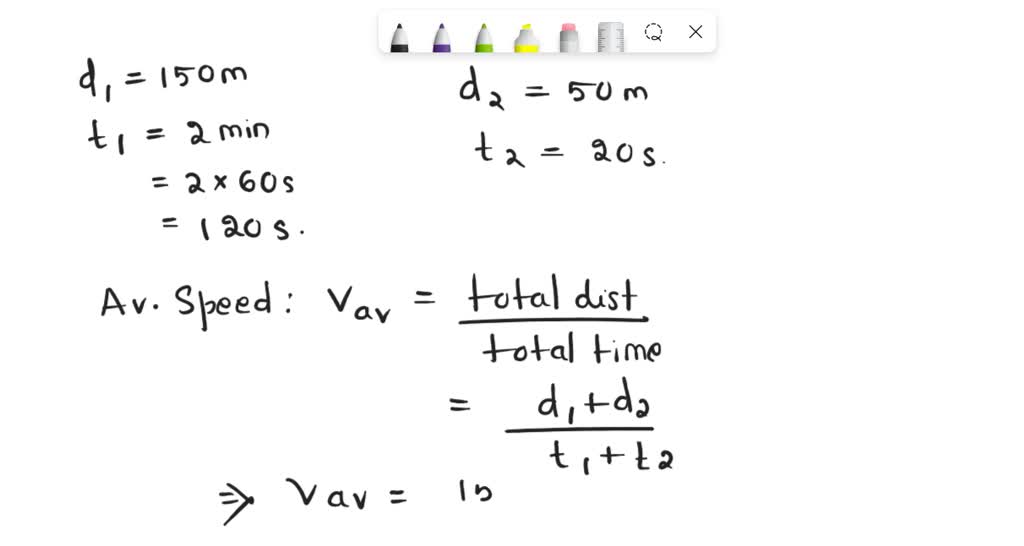 d₁ = 150m
t₁ = 2 min
= 2 × 60s
= 120s.
d₂ = 50m
t₂ = 20s.
Av. Speed: Vav = total dist / total time
= d₁+d₂ / t₁+t₂
⇒ Vav = 15